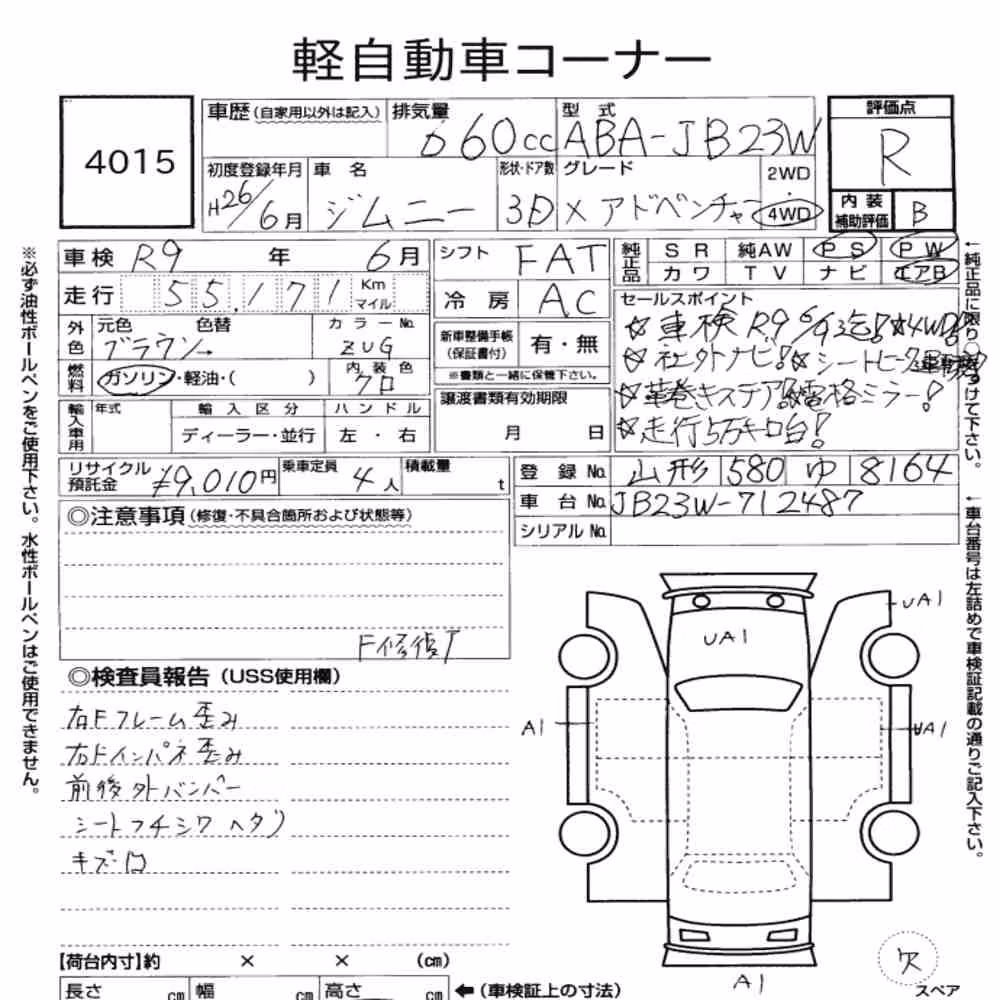 軽自動車コーナー
4015
車歴(自家用以外は記入)
排気量
660cc
型式
ABA-JB23W
評価点
R
初度登録年月
H26/6月
車名
ジムニー
形状・ドア数
3D
グレード
Xアドベンチャー
2WD
・
4WD
内装
補助評価
B
車検 R9年6月
シフト
FAT
純正品
SR 純AW PS PW
カワ TV ナビ エアB
走行 55,171 Km
マイル
冷房 AC
セールスポイント
☆車検R9 6/9迄!☆4WD!
☆社外ナビ!☆シートヒーター
☆革巻きステア!☆電格ミラー!
☆走行5万キロ台!
外色
元色 色替
ブラウン→
カラーNo.
ZUG
新車整備手帳
(保証書付)
有・無
※書類と一緒に保管下さい。
燃料
ガソリン・軽油・( )
内装色
クロ
譲渡書類有効期限
月 日
輸入車用
年式
輸入区分
ハンドル
ディーラー・並行
左・右
リサイクル
預託金
¥9,010円
乗車定員
4人
積載量
t
登録No. 山形 580 ゆ 8164
車台No. JB23W-712487
シリアルNo.
◎注意事項(修復・不具合箇所および状態等)
F修復ア
◎検査員報告(USS使用欄)
右Fフレーム歪み
右Fインパネ歪み
前後外バンパー
シートフチシワ ヘタリ
キズ凹
UA1
UA1
A1
UA1
A1
欠
スペア
【荷台内寸】約 × × (cm)
長さ cm
幅 cm
高さ cm
←(車検証上の寸法)
※必ず油性ボールペンをご使用下さい。水性ボールペンはご使用できません。
←純正品に限り○をつけて下さい。
←車台番号は左詰めで車検証記載の通りご記入下さい。